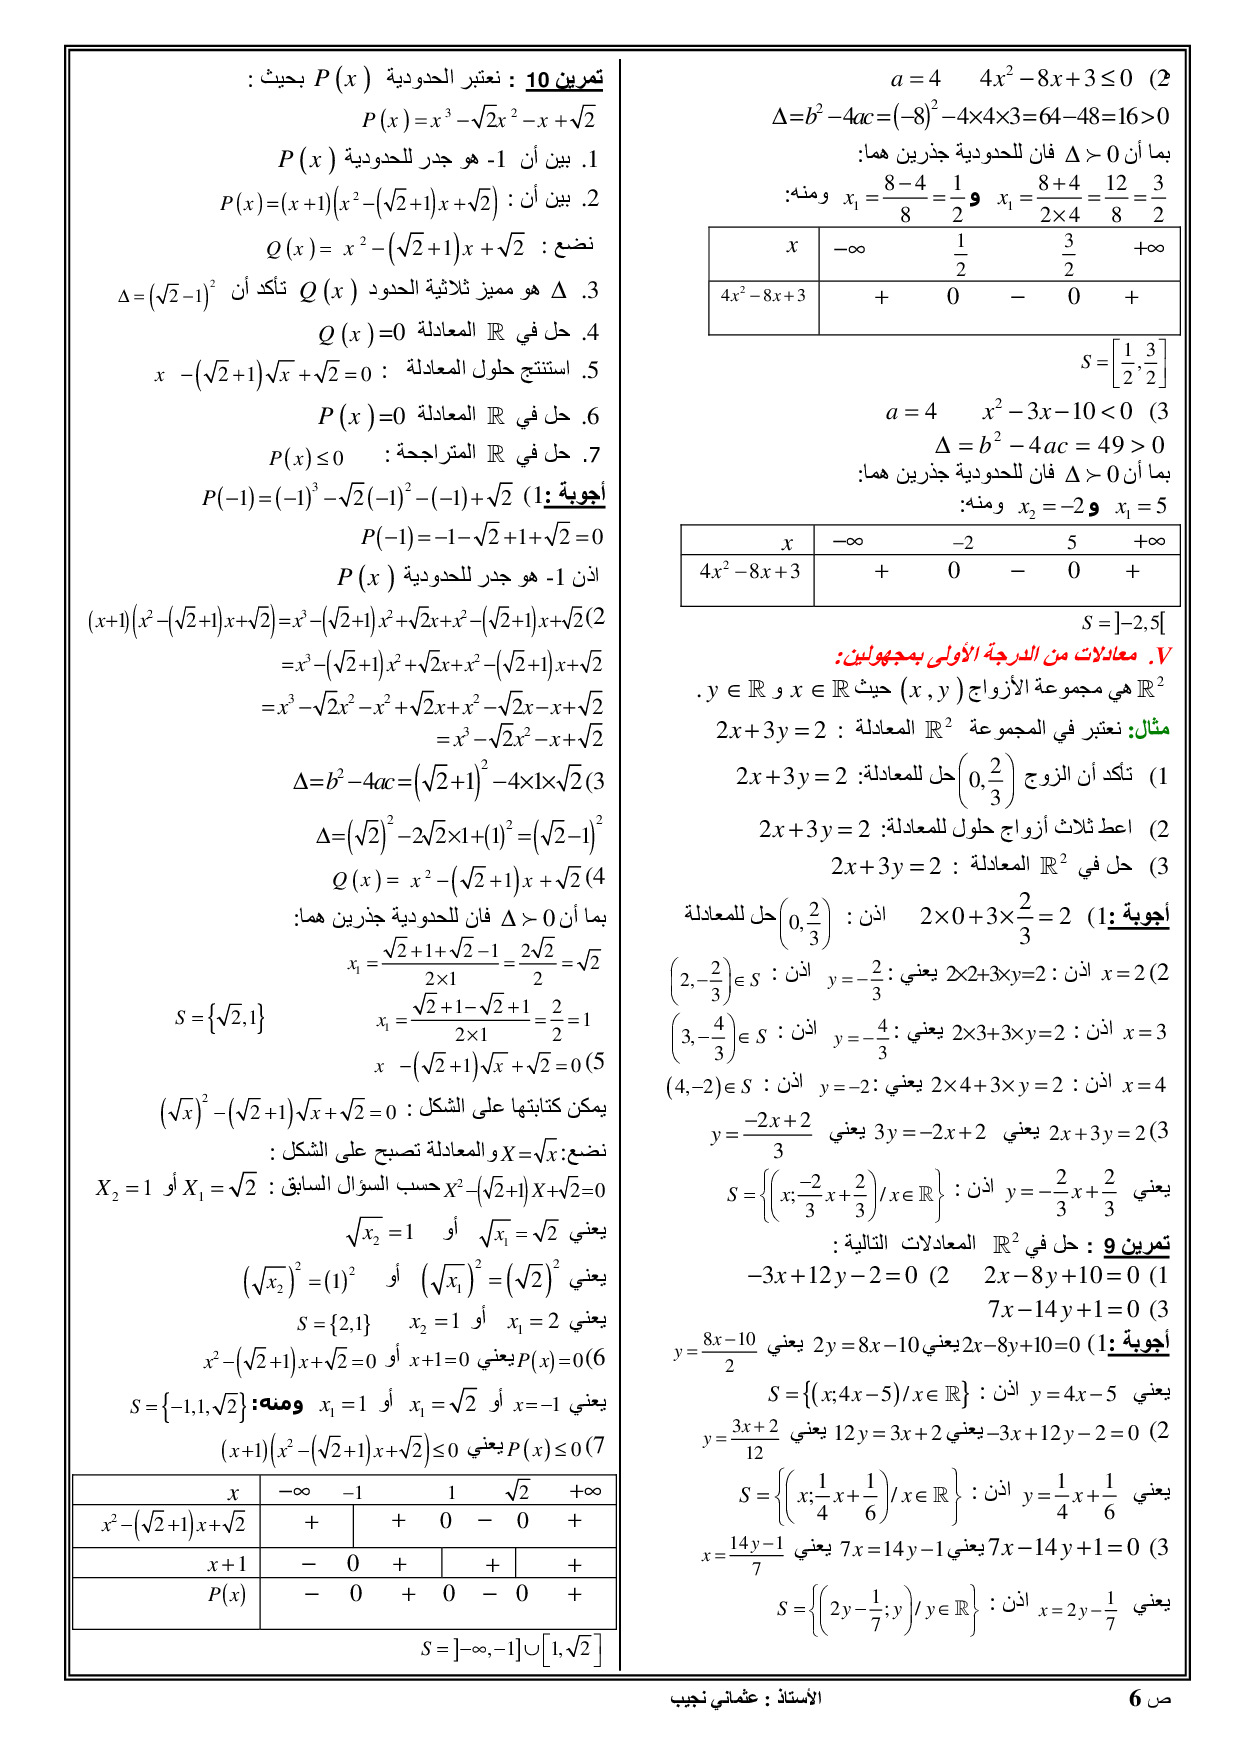 2) 4x² − 8x + 3 ≤ 0 a = 4
Δ = b² − 4ac = (−8)² − 4×4×3 = 64 − 48 = 16 > 0
بما أن Δ ≻ 0 فان للحدودية جذرين هما:
x₁ = (8+4)/(2×4) = 12/8 = 3/2 و x₁ = (8−4)/8 = 1/2 ومنه:
x −∞ 1/2 3/2 +∞
4x² − 8x + 3 + 0 − 0 +
S = [1/2, 3/2]
3) x² − 3x − 10 < 0 a = 4
Δ = b² − 4ac = 49 > 0
بما أن Δ ≻ 0 فان للحدودية جذرين هما:
x₁ = 5 و x₂ = −2 ومنه:
x −∞ −2 5 +∞
4x² − 8x + 3 + 0 − 0 +
S = ]−2,5[
V. معادلات من الدرجة الأولى بمجهولين:
ℝ² هي مجموعة الأزواج (x , y) حيث x ∈ ℝ و y ∈ ℝ .
مثال: نعتبر في المجموعة ℝ² المعادلة : 2x + 3y = 2
1) تأكد أن الزوج (0, 2/3) حل للمعادلة: 2x + 3y = 2
2) اعط ثلاث أزواج حلول للمعادلة: 2x + 3y = 2
3) حل في ℝ² المعادلة : 2x + 3y = 2
أجوبة :1) 2×0 + 3×2/3 = 2 اذن : (0, 2/3) حل للمعادلة
2) x = 2 اذن : 2×2+3×y=2 يعني : y = −2/3 اذن : (2, −2/3) ∈ S
x = 3 اذن : 2×3+3×y=2 يعني : y = −4/3 اذن : (3, −4/3) ∈ S
x = 4 اذن : 2×4+3×y = 2 يعني : y = −2 اذن : (4,−2) ∈ S
3) 2x + 3y = 2 يعني 3y = −2x + 2 يعني y = (−2x + 2)/3
يعني y = −2/3 x + 2/3 اذن : S = {(x; −2/3 x + 2/3) / x ∈ ℝ}
تمرين 9 : حل في ℝ² المعادلات التالية :
1) 2x − 8y + 10 = 0 2) −3x + 12y − 2 = 0
3) 7x − 14y + 1 = 0
أجوبة :1) 2x−8y+10=0 يعني 2y = 8x − 10 يعني y = (8x − 10)/2
يعني y = 4x − 5 اذن : S = {(x; 4x − 5) / x ∈ ℝ}
2) −3x + 12y − 2 = 0 يعني 12y = 3x + 2 يعني y = (3x + 2)/12
يعني y = 1/4 x + 1/6 اذن : S = {(x; 1/4 x + 1/6) / x ∈ ℝ}
3) 7x − 14y + 1 = 0 يعني 7x = 14y − 1 يعني x = (14y − 1)/7
يعني x = 2y − 1/7 اذن : S = {(2y − 1/7; y) / y ∈ ℝ}
تمرين 10 : نعتبر الحدودية P(x) بحيث :
P(x) = x³ − √2x² − x + √2
1. بين أن 1- هو جدر للحدودية P(x)
2. بين أن : P(x) = (x+1)(x² − (√2+1)x + √2)
نضع : Q(x) = x² − (√2+1)x + √2
3. Δ هو مميز ثلاثية الحدود Q(x) تأكد أن Δ = (√2 − 1)²
4. حل في ℝ المعادلة Q(x)=0
5. استنتج حلول المعادلة : x − (√2+1)√x + √2 = 0
6. حل في ℝ المعادلة P(x)=0
7. حل في ℝ المتراجحة : P(x) ≤ 0
أجوبة :1) P(−1) = (−1)³ − √2(−1)² − (−1) + √2
P(−1) = −1 − √2 + 1 + √2 = 0
اذن 1- هو جدر للحدودية P(x)
2) (x+1)(x² − (√2+1)x + √2) = x³ − (√2+1)x² + √2x + x² − (√2+1)x + √2
= x³ − (√2+1)x² + √2x + x² − (√2+1)x + √2
= x³ − √2x² − x² + √2x + x² − √2x − x + √2
= x³ − √2x² − x + √2
3) Δ = b² − 4ac = (√2+1)² − 4×1×√2
Δ = (√2)² − 2√2×1 + (1)² = (√2−1)²
4) Q(x) = x² − (√2+1)x + √2
بما أن Δ ≻ 0 فان للحدودية جذرين هما:
x₁ = (√2+1+√2−1)/(2×1) = 2√2/2 = √2
x₁ = (√2+1−√2+1)/(2×1) = 2/2 = 1 S = {√2,1}
5) x − (√2+1)√x + √2 = 0
يمكن كتابتها على الشكل : (√x)² − (√2+1)√x + √2 = 0
نضع: X = √x والمعادلة تصبح على الشكل :
X² − (√2+1)X + √2 = 0 حسب السؤال السابق : X₁ = √2 أو X₂ = 1
يعني √x₁ = √2 أو √x₂ = 1
يعني (√x₁)² = (√2)² أو (√x₂)² = (1)²
يعني x₁ = 2 أو x₂ = 1 S = {2,1}
6) P(x) = 0 يعني x+1=0 أو x² − (√2+1)x + √2 = 0
يعني x = −1 أو x₁ = √2 أو x₁ = 1 ومنه: S = {−1,1,√2}
7) P(x) ≤ 0 يعني (x+1)(x² − (√2+1)x + √2) ≤ 0
x −∞ −1 1 √2 +∞
x² − (√2+1)x + √2 + + 0 − 0 +
x + 1 − 0 + + +
P(x) − 0 + 0 − 0 +
S = ]−∞,−1] ∪ [1, √2]
ص 6 الأستاذ : عثماني نجيب